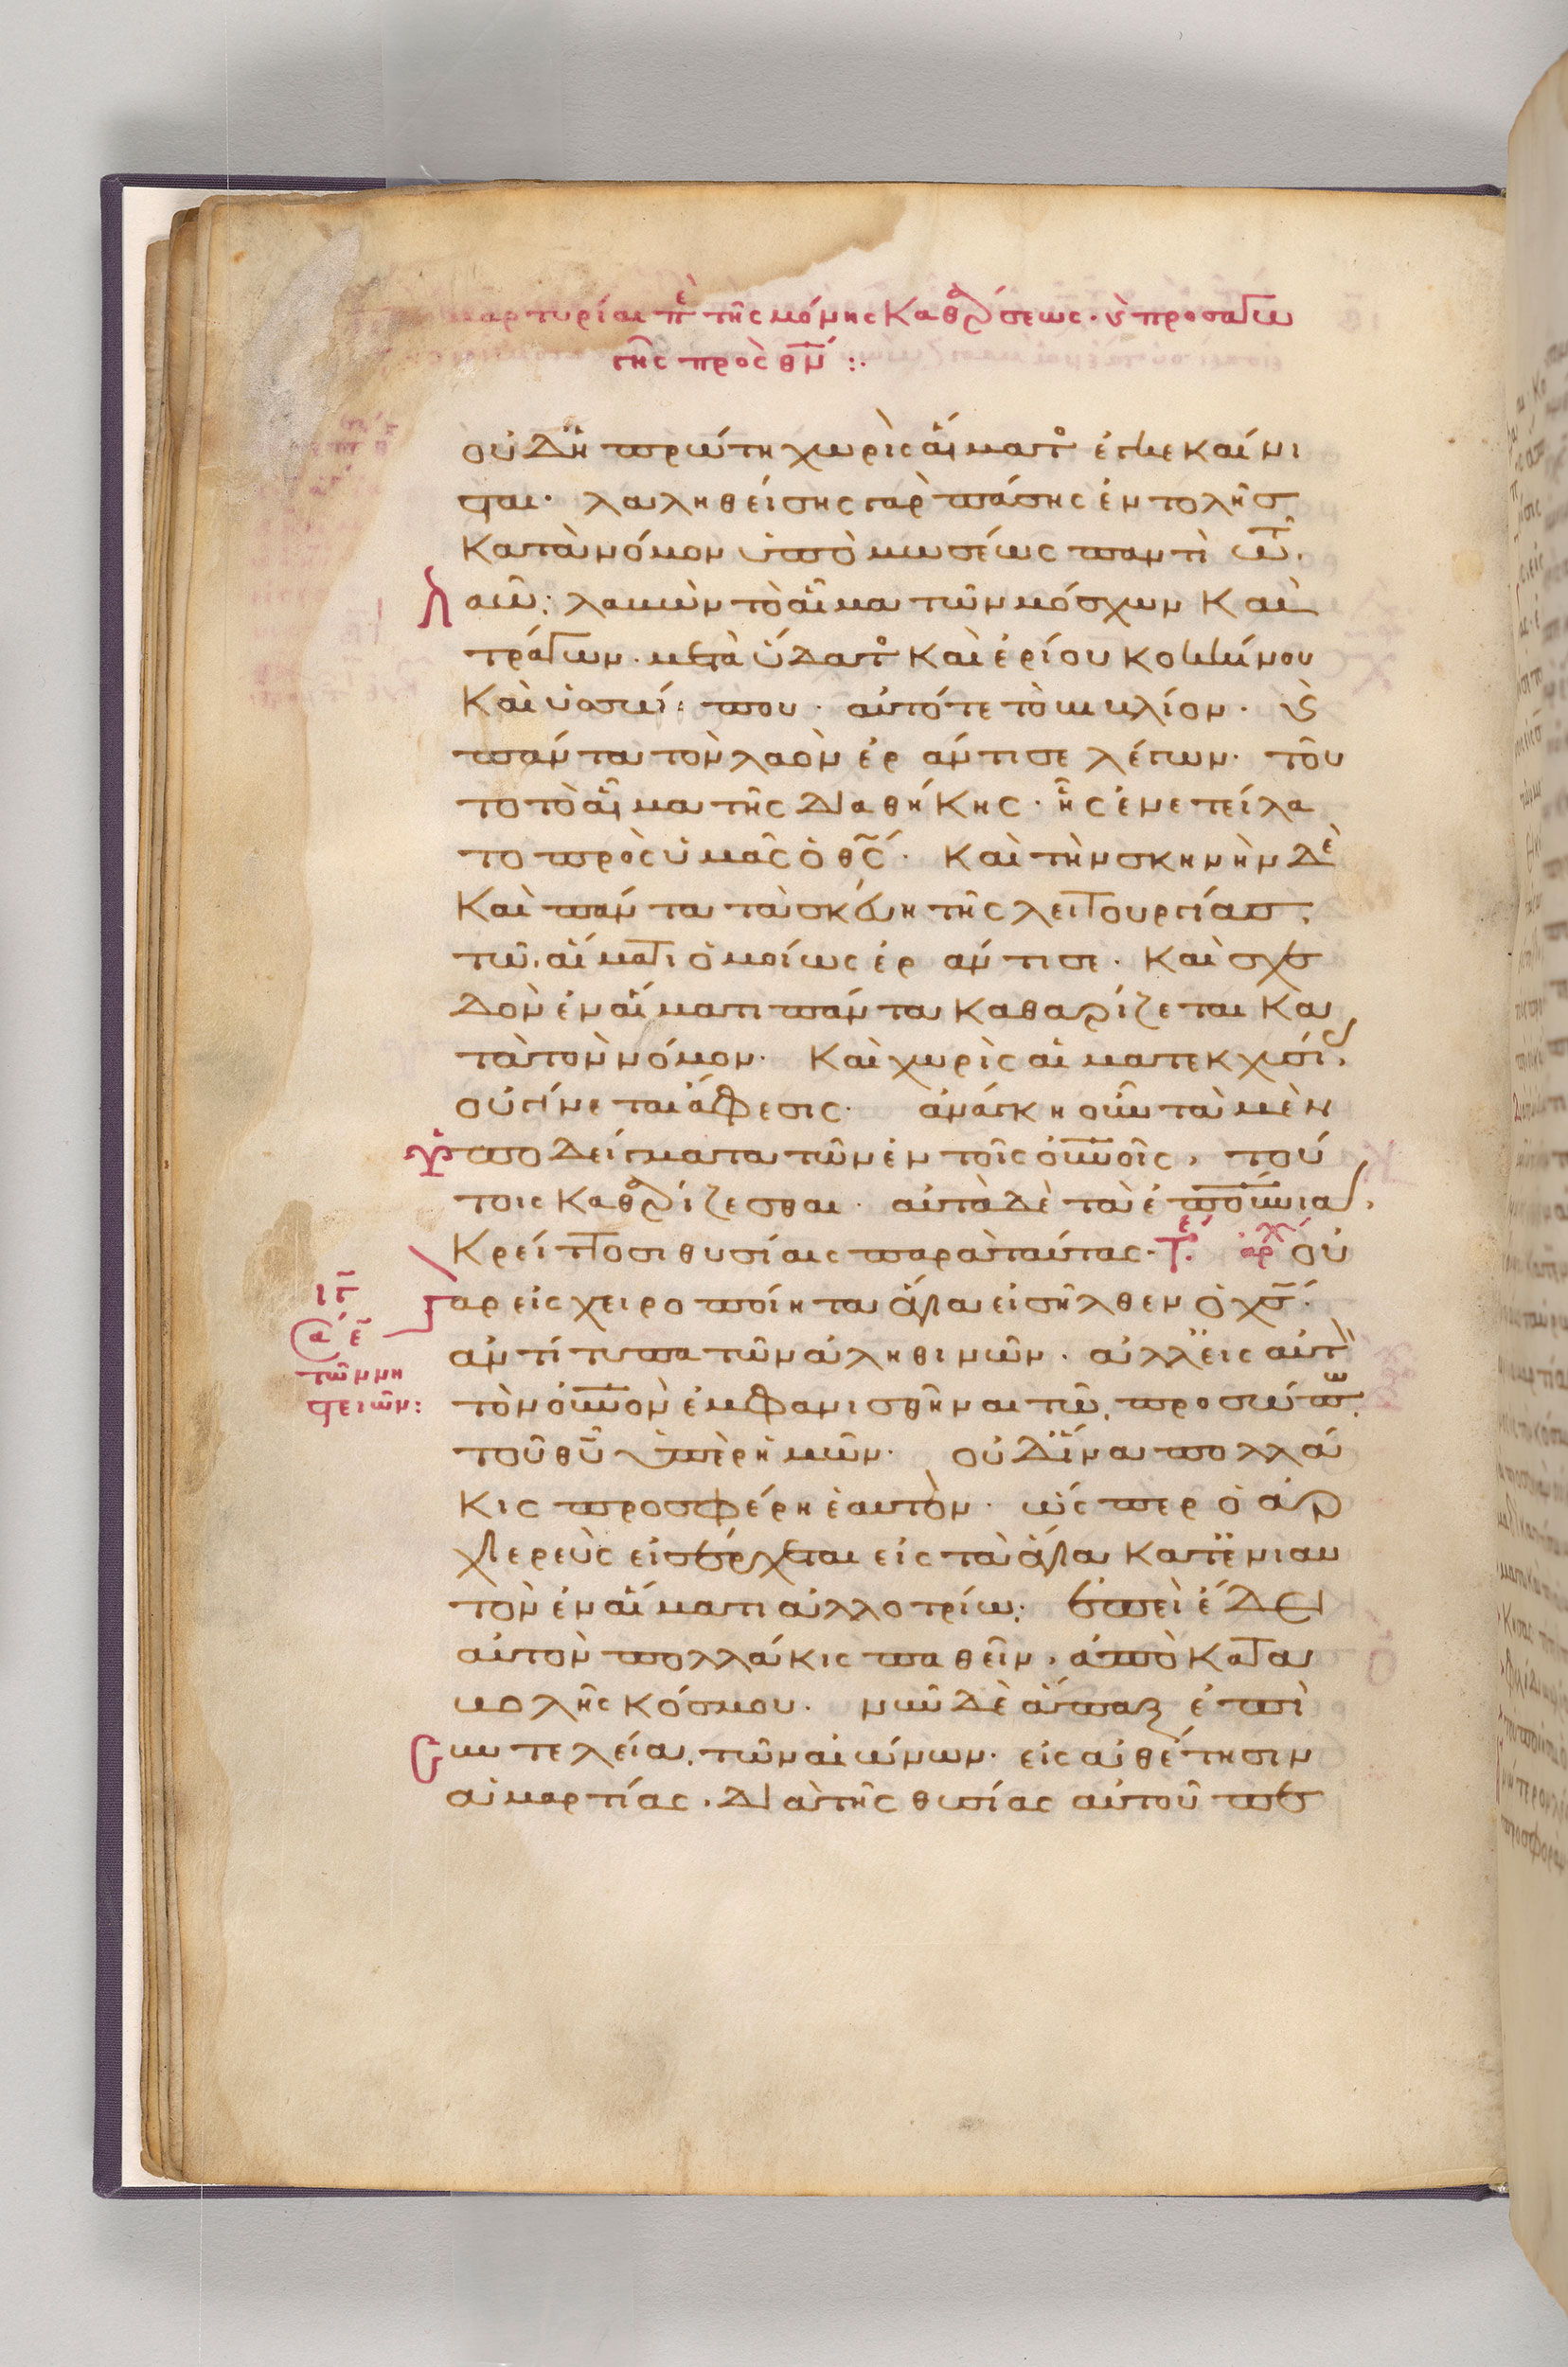 μαρτυρίαι πὲ τῆς μόνης καθάρσεως· ὑπὲρ προσαγω
γῆς πρὸς θν̄ :·
οὐδ' ἡ πρώτη χωρὶς αἵματος ἐγκεκαίνι
σται· λαληθείσης γὰρ πάσης ἐντολῆσ
κατὰ νόμον ὑπὸ μωσέως παντὶ τῶ
λαῶ; λαβὼν τὸ αἷμα τῶν μόσχων καὶ
τράγων· μετὰ ὕδατος καὶ ἐρίου κοκκίνου
καὶ ὑσσώπου· αὐτό τε τὸ βιβλίον· καὶ
πάντα τὸν λαὸν ἐράντισε λέγων· τοῦ
το τὸ αἷμα τῆς διαθήκης· ἧς ἐνετείλα
το πρὸς ὑμᾶς ὁ θς̄· καὶ τὴν σκηνὴν δὲ
καὶ πάντα τὰ σκεύη τῆς λειτουργίασ,
τῶ αἵματι ὁμοίως ἐράντισε· καὶ σχε
δὸν ἐν αἵματι πάντα καθαρίζεται κα
τὰ τὸν νόμον· καὶ χωρὶς αἱματεκχυσίας,
οὐ γίνεται ἄφεσις· ἀνάγκη οὖν τὰ μὲν
ὑποδείγματα τῶν ἐν τοῖς οὐνοῖς, τού
τοις καθαρίζεσθαι· αὐτὰ δὲ τὰ ἐπουνια,
κρείττοσι θυσίαις παρὰ ταύτας· τε ἀρχ οὐ
γὰρ εἰς χειροποίητα ἅγια εἰσῆλθεν ὁ χς̄·
ιγ̄
α' ε̄
τῶν μνη
στειῶν:
ἀντίτυπα τῶν ἀληθινῶν· ἀλλ' εἰς αὐτὸν
τὸν οὐνον ἐμφανισθῆναι τῶ προσώπω
τοῦ θῡ ὑπὲρ ἡμῶν· οὐδ' ἵνα πολλά
κις προσφέρη ἑαυτὸν· ὥσπερ ὁ ἀρ
χιερεὺς εἰσέρχεται εἰς τὰ ἅγια κατ' ἐνιαυ
τὸν ἐν αἵματι ἀλλοτρίω· ἐπεὶ ἔδει
αὐτὸν πολλάκις παθεῖν, ἀπὸ κατα
βολῆς κόσμου· νῦν δὲ ἅπαξ ἐπὶ
συντελεία τῶν αἰώνων· εἰς ἀθέτησιν
ἁμαρτίας, διὰ τῆς θυσίας αὐτοῦ πε